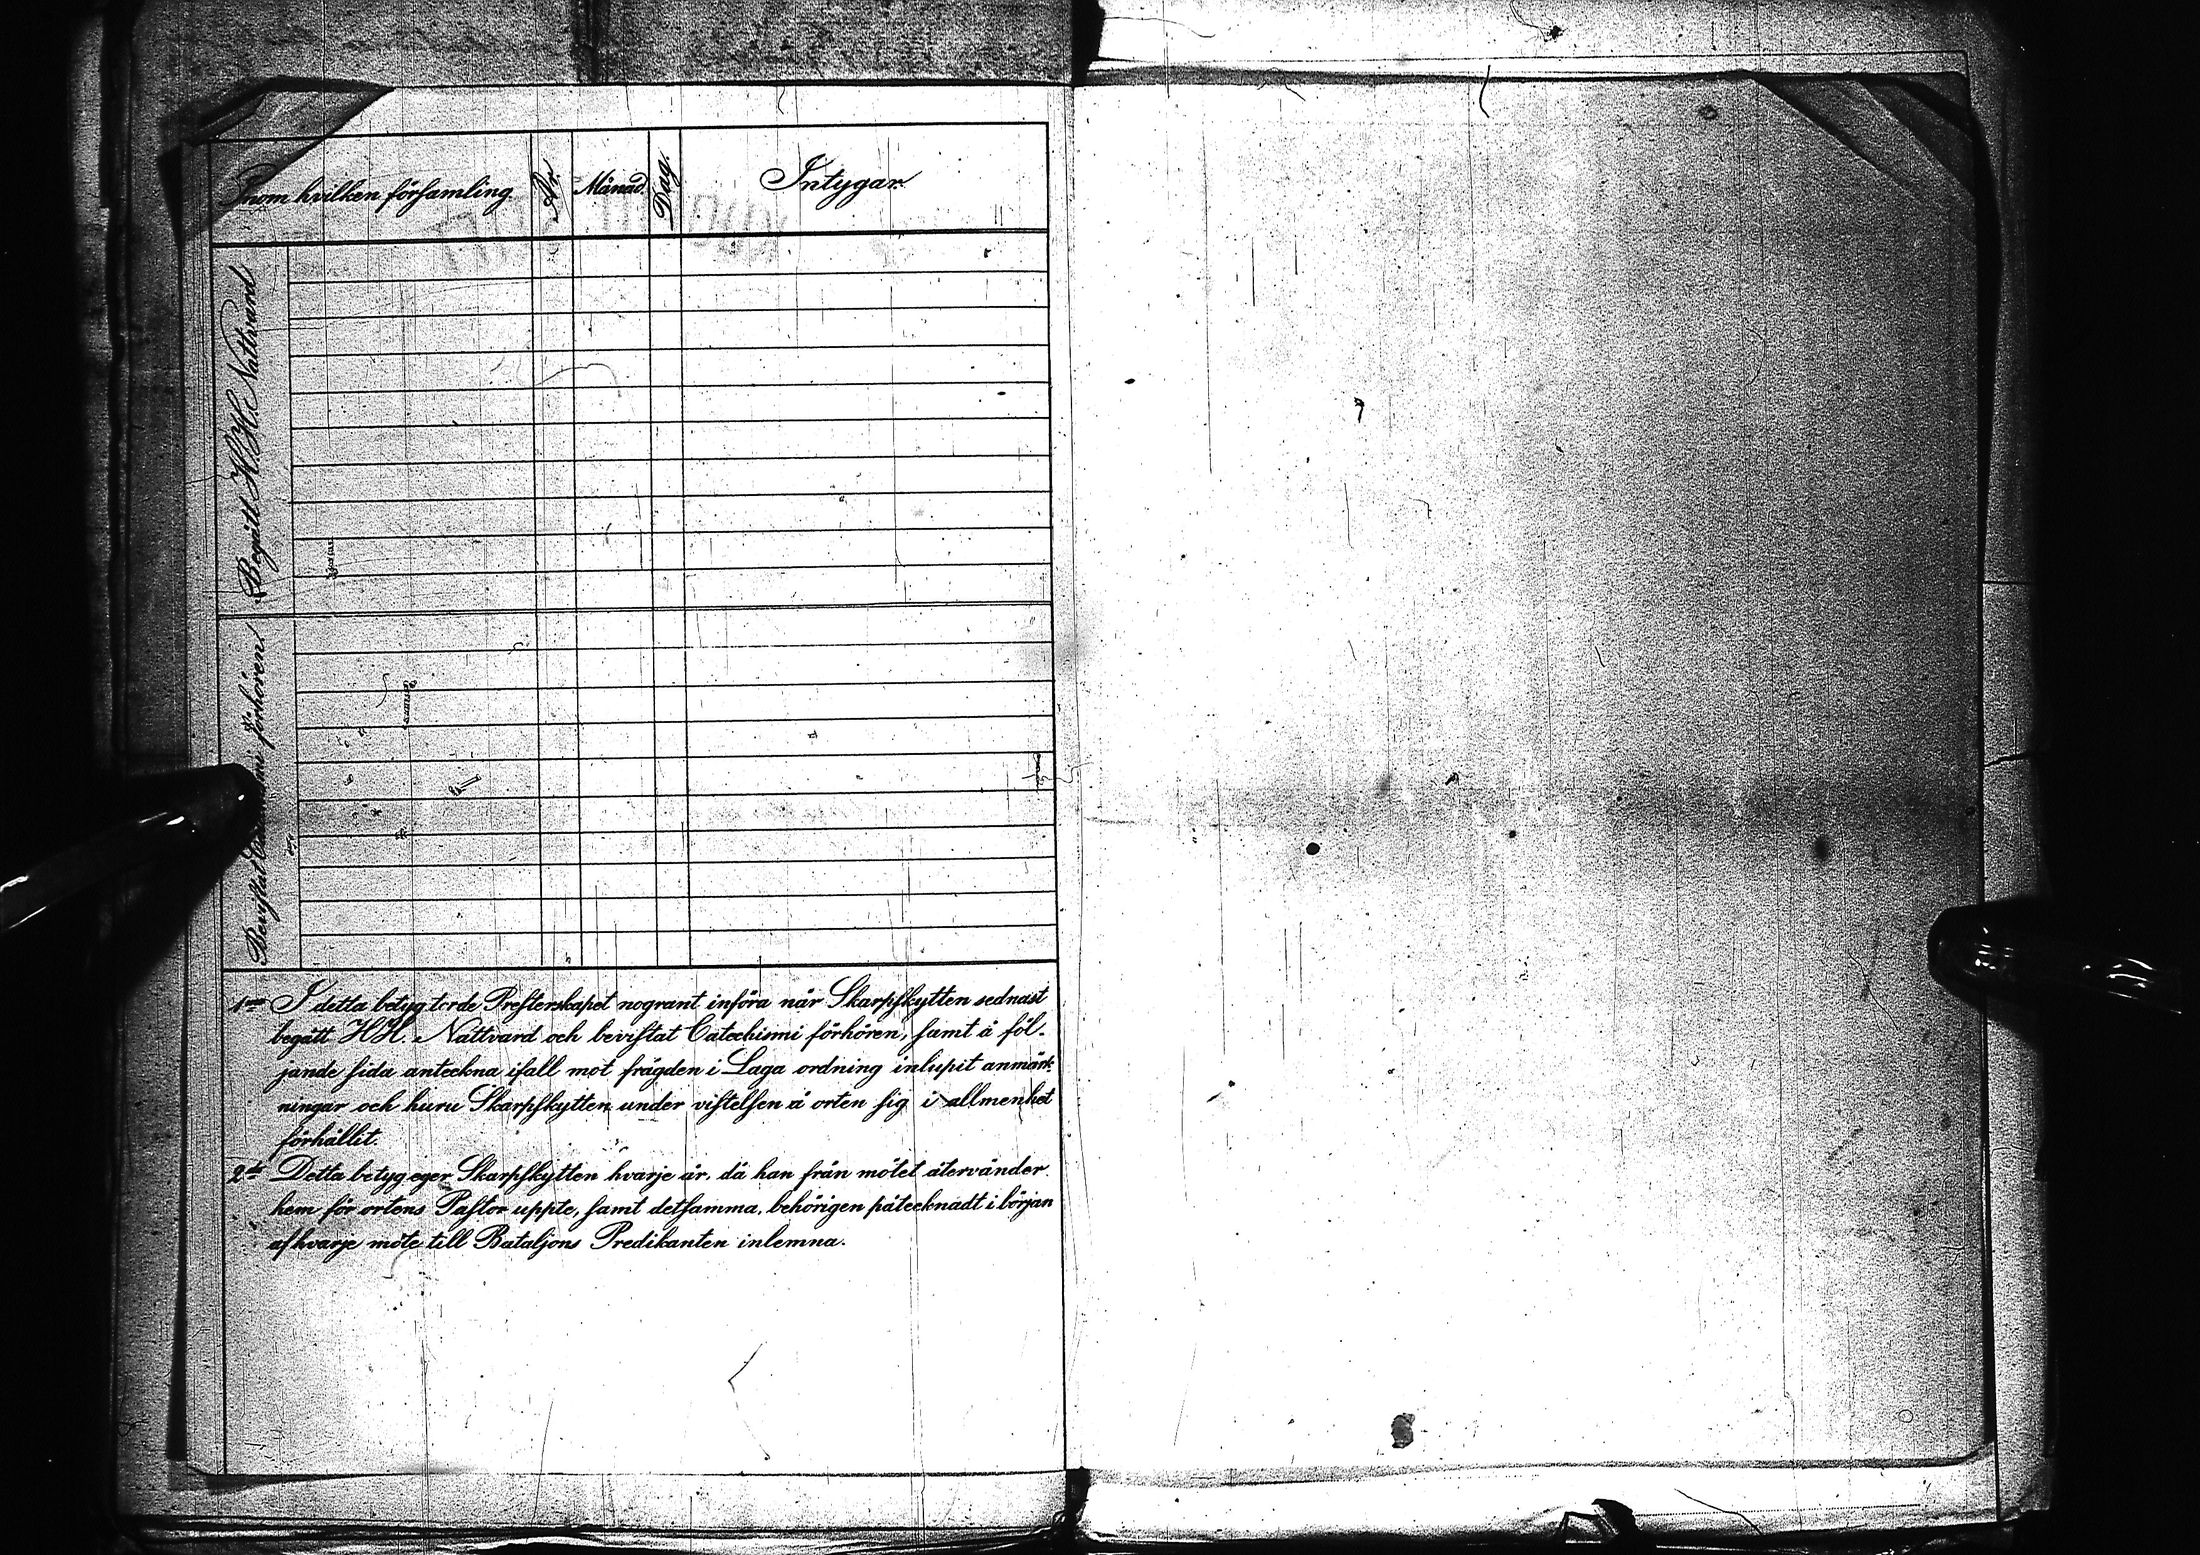 Inom hvilken församling. År Månad. Dag. Intygar.
Begått H.H. Nattvard
Bevistat förhören
1mo I detta betyg torde Presterskapet nogrant införa när Skarpskytten sednast
begått H.H. Nattvard och bevistat Catechismi förhören, samt å föl-
jande sida anteckna ifall mot frägden i Laga ordning inlupit anmärk-
ningar och huru Skarpskytten under vistelsen å orten sig i allmenhet
förhållit.
2do Detta betyg eger Skarpskytten hvarje år, då han från mötet återvänder
hem för ortens Pastor uppte, samt detsamma, behörigen påtecknadt i början
af hvarje möte till Bataljons Predikanten inlemna.